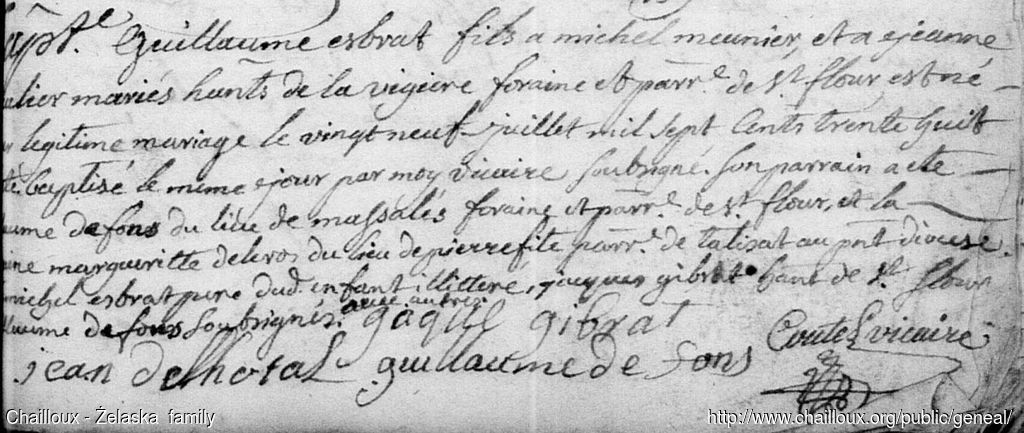 bapt.e Guillaume esbrat fils a michel meunier, et a jeanne
mariés hants de la vigiere foraine et parr.e de st flour, est né
legitime mariage le vingt neuf juillet mil sept Cents trente huit
été baptisé le mime jour par moy vicaire soubsigné. son parrain a ete
laume defons du lieu de massalés foraine et parr.e de st. flour, et la
margueritte deleros du lieu de pierrefite parr.e de talisat au pnt diocese.
michel esbrat pere dud. enfant illitteré, jacques gibrat hant de st. flour
llaume defons soubsignés. avec autres. gaque gibrat
Coutel vicaire
jean delhotal guillaume de fons
Chailloux - Želaska family
http://www.chailloux.org/public/geneal/